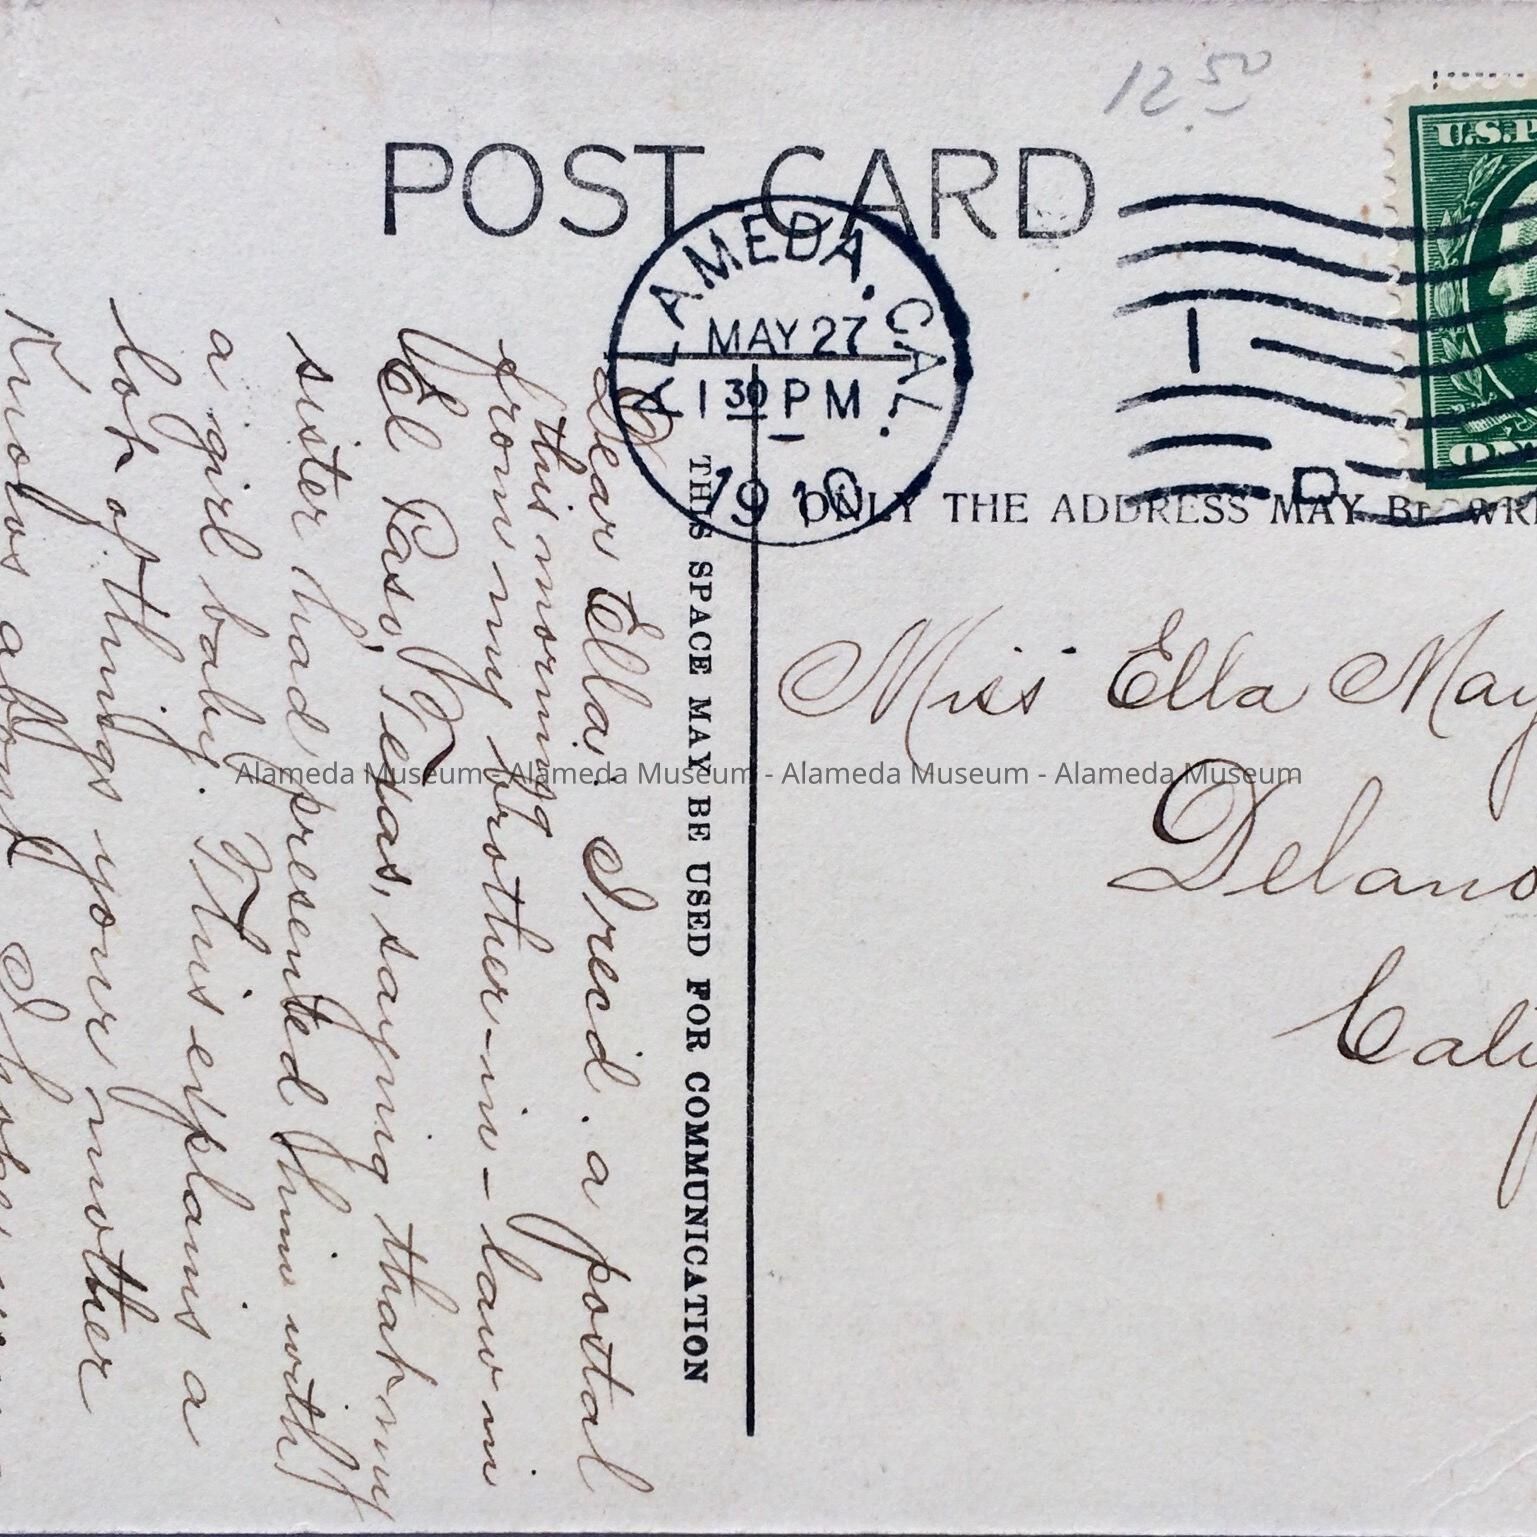 12.50
POST CARD
ALAMEDA. CAL.
MAY 27
1 30 PM
1910
1
D
U.S.P
ON
THIS SPACE MAY BE USED FOR COMMUNICATION
ONLY THE ADDRESS MAY BE WRI
Miss Ella May
Delano
Calif
Dear Ella:. I rec'd. a postal
this morning
from my brother-in-law in
El Paso, Texas, saying that my
sister had presented him with
a girl baby. This explains a
lot of things your mother
knows about. I hope
Alameda Museum - Alameda Museum - Alameda Museum - Alameda Museum